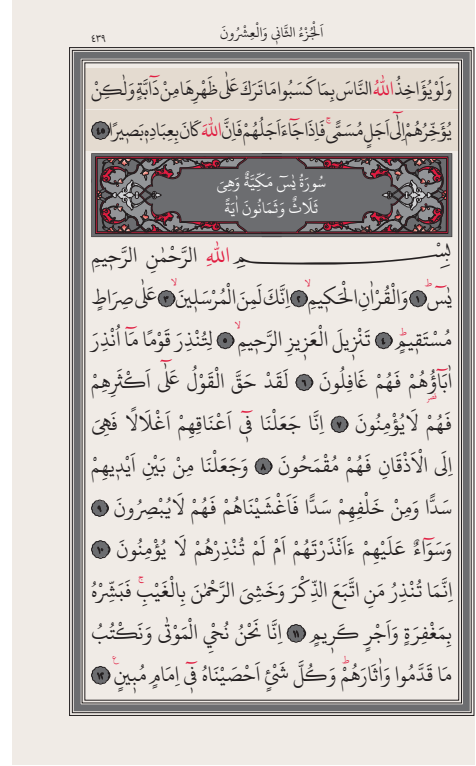 اَلْجُزْءُ الثَّانِي وَالْعِشْرُونَ
٤٣٩
وَلَوْ يُؤَاخِذُ اللّٰهُ النَّاسَ بِمَا كَسَبُوا مَا تَرَكَ عَلٰى ظَهْرِهَا مِنْ دَٓابَّةٍ وَلٰكِنْ
يُؤَخِّرُهُمْ اِلٰٓى اَجَلٍ مُسَمًّىۚ فَاِذَا جَٓاءَ اَجَلُهُمْ فَاِنَّ اللّٰهَ كَانَ بِعِبَادِه۪ بَص۪يرًا ٤٥
سُورَةُ يٰسٓ مَكِّيَّةٌ وَهِيَ
ثَلَاثٌ وَثَمَانُونَ اٰيَةً
بِسْمِ اللّٰهِ الرَّحْمٰنِ الرَّح۪يمِ
يٰسٓۜ ١ وَالْقُرْاٰنِ الْحَك۪يمِۙ ٢ اِنَّكَ لَمِنَ الْمُرْسَل۪ينَۙ ٣ عَلٰى صِرَاطٍ
مُسْتَق۪يمٍۜ ٤ تَنْز۪يلَ الْعَز۪يزِ الرَّح۪يمِۙ ٥ لِتُنْذِرَ قَوْمًا مَٓا اُنْذِرَ
اٰبَٓاؤُ۬هُمْ فَهُمْ غَافِلُونَ ٦ لَقَدْ حَقَّ الْقَوْلُ عَلٰٓى اَكْثَرِهِمْ
فَهُمْ لَا يُؤْمِنُونَ ٧ اِنَّا جَعَلْنَا ف۪ٓي اَعْنَاقِهِمْ اَغْلَالًا فَهِيَ
اِلَى الْاَذْقَانِ فَهُمْ مُقْمَحُونَ ٨ وَجَعَلْنَا مِنْ بَيْنِ اَيْد۪يهِمْ
سَدًّا وَمِنْ خَلْفِهِمْ سَدًّا فَاَغْشَيْنَاهُمْ فَهُمْ لَا يُبْصِرُونَ ٩
وَسَوَٓاءٌ عَلَيْهِمْ ءَاَنْذَرْتَهُمْ اَمْ لَمْ تُنْذِرْهُمْ لَا يُؤْمِنُونَ ١٠
اِنَّمَا تُنْذِرُ مَنِ اتَّبَعَ الذِّكْرَ وَخَشِيَ الرَّحْمٰنَ بِالْغَيْبِۚ فَبَشِّرْهُ
بِمَغْفِرَةٍ وَاَجْرٍ كَر۪يمٍ ١١ اِنَّا نَحْنُ نُحْيِ الْمَوْتٰى وَنَكْتُبُ
مَا قَدَّمُوا وَاٰثَارَهُمْۜ وَكُلَّ شَيْءٍ اَحْصَيْنَاهُ ف۪ٓي اِمَامٍ مُب۪ينٍ۟ ١٢